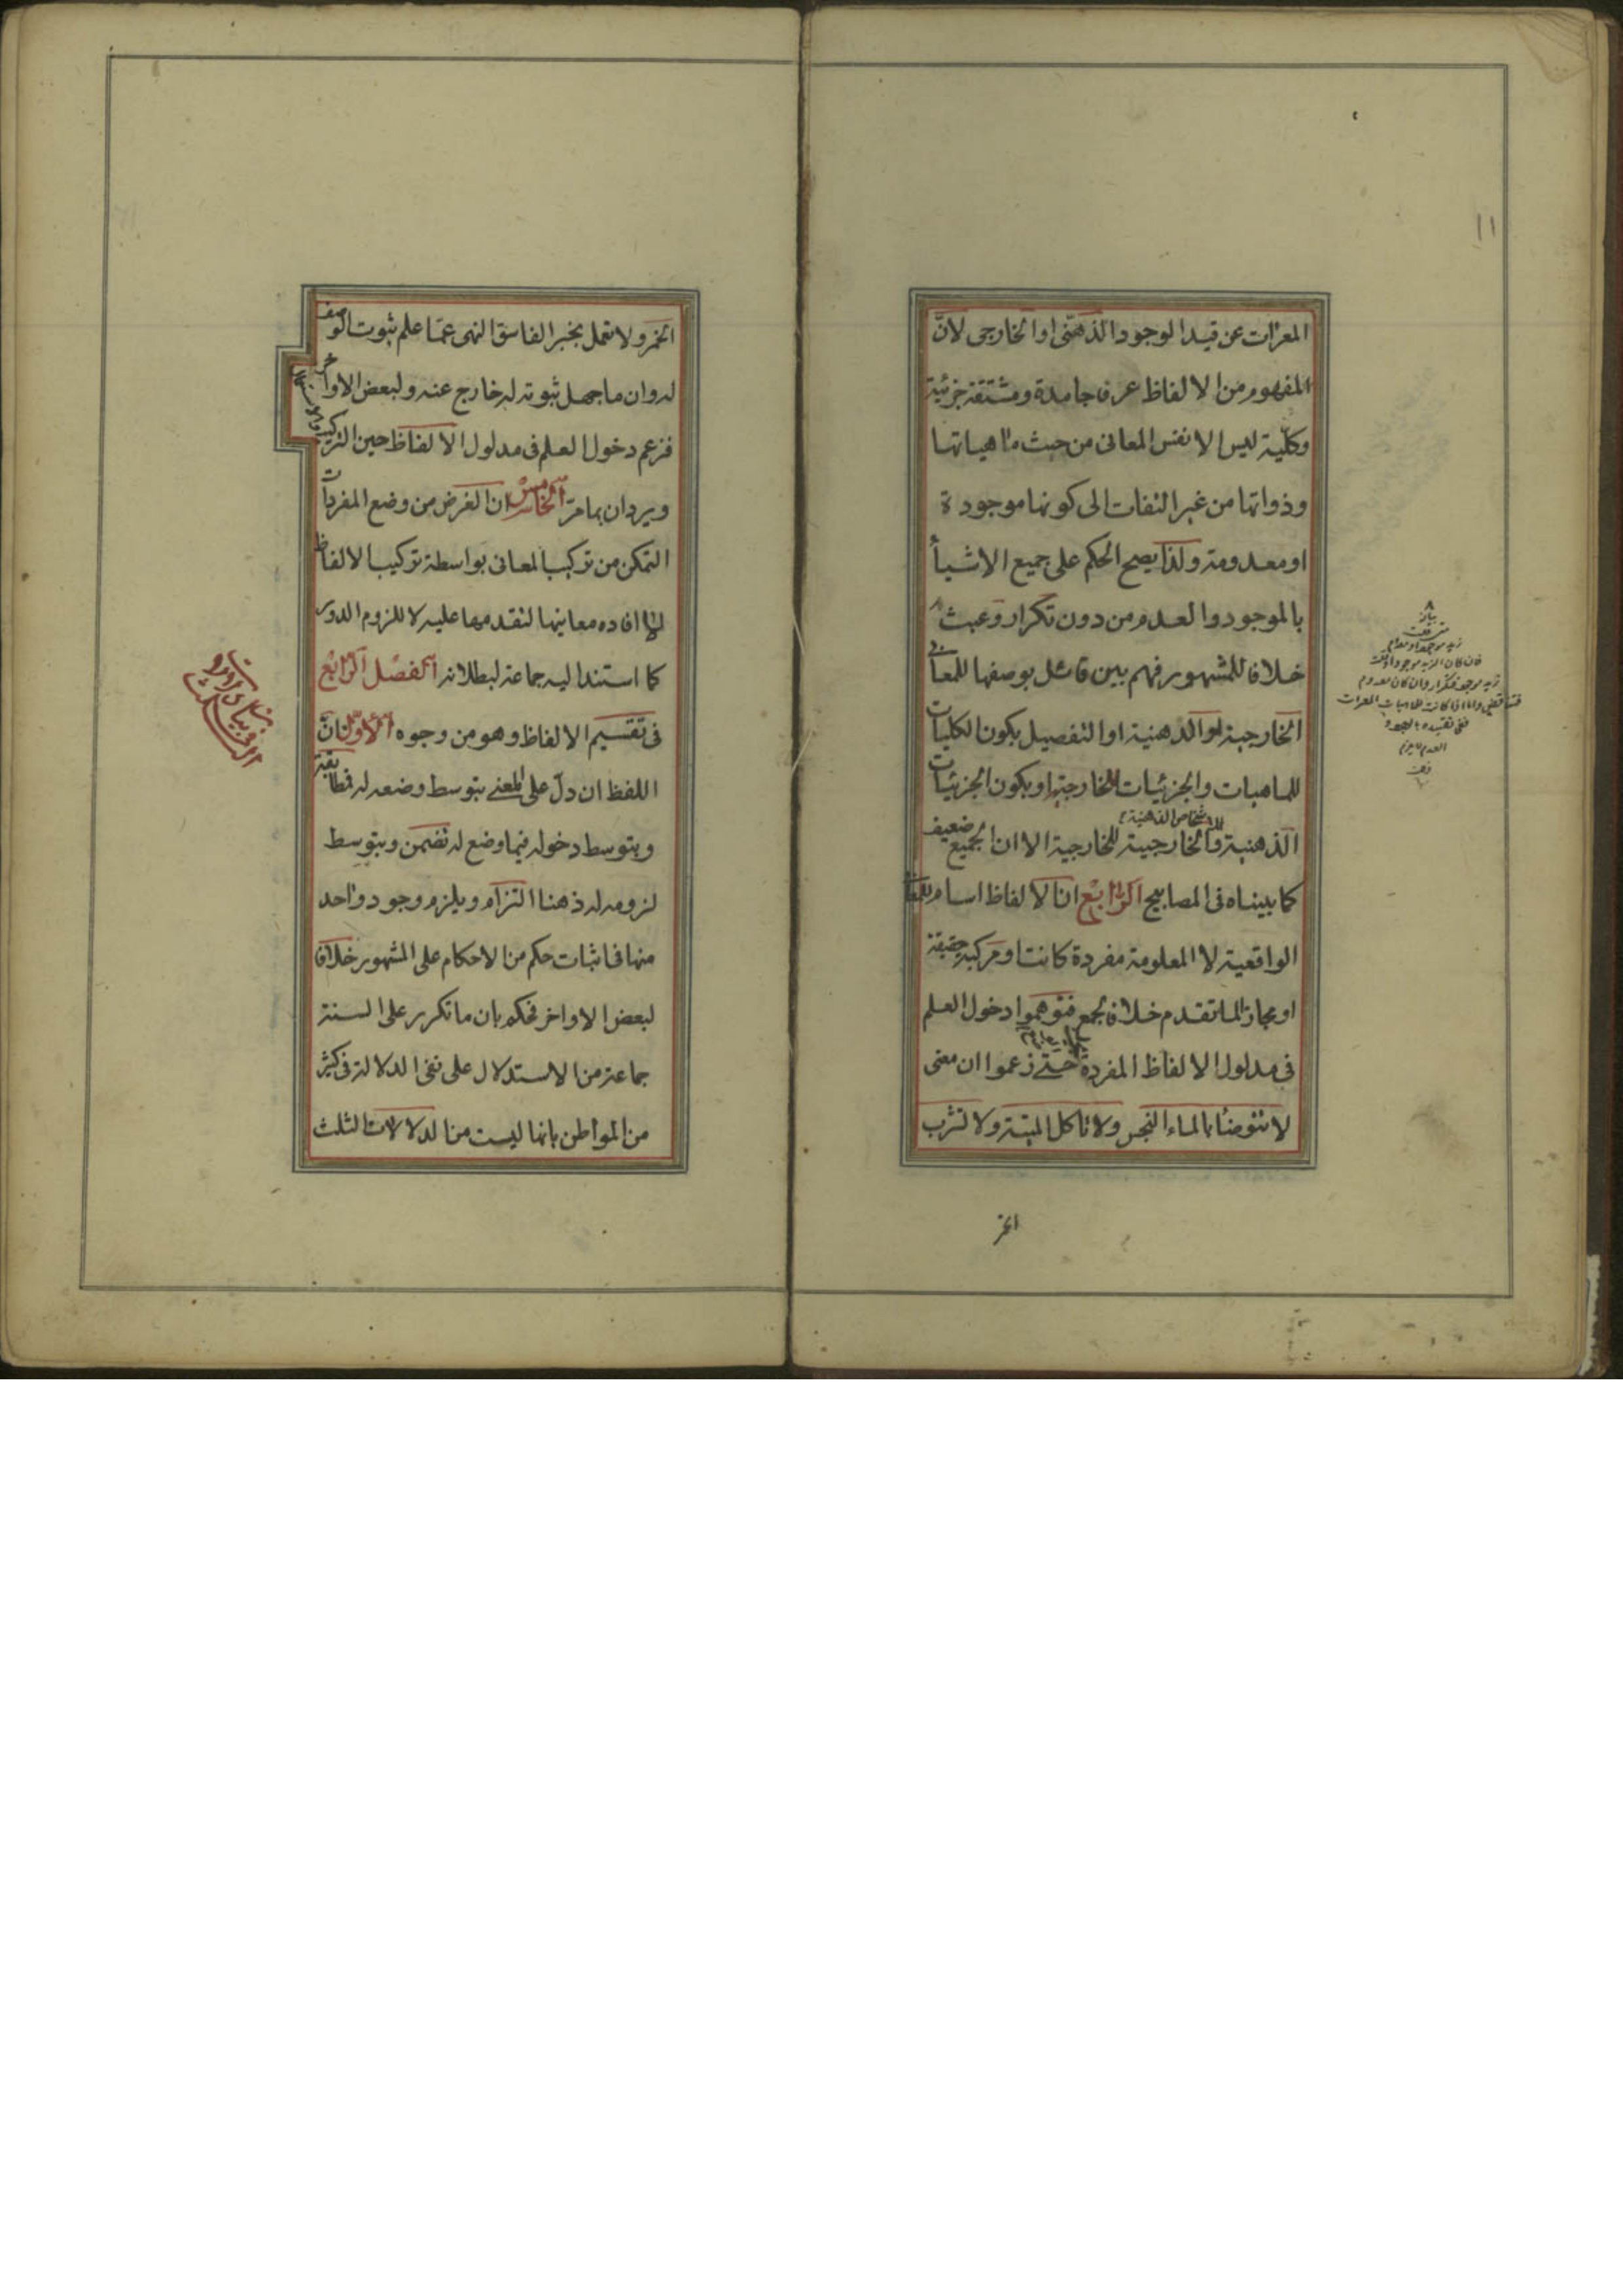 ١١
المعراة عن قيد الوجود الذهنى او الخارجى لانّ
المفهوم من الالفاظ عرفا جامدة ومشتقة جزئية
وكلّية ليس الا نفس المعانى من حيث ماهياتها
وذواتها من غير التفات الى كونها موجودة
او معدومة ولذا يصح الحكم على جميع الاشيأ
بالموجود والعدم من دون تكرار وعبث
خلافا للمشهور فهم بين قائل بوصفها للمعانى
الخارجية او الذهنية او التفصيل بكون الكليات
للماهيات والجزئيات للخارجية او بكون الجزئيات
للاشخاص الذهنية
الذهنية والخارجية للخارجية الا ان الجميع ضعيف
كما بيناه فى المصابيح الرّابع ان الالفاظ اسام للمعانى
الواقعية لا المعلومة مفردة كانت او مركبة حقيقة
او مجازا لما تقدم خلافا لجمع فتوهموا دخول العلم
فى مدلول الالفاظ المفردة حتى زعموا ان معنى
لا تتوضأ بالماء النجس ولا تاكل الميتة ولا تشرب
الخمر
زيد موجود او معدوم
فان كان الزيد موجودا وقلت
زيد موجود فتكرار وان كان معدوم
فتناقض واما اذا كانت للماهيات المعراة
العدم
الخمر ولا تعمل بخبر الفاسق النهى عمّا علم ثبوت الوصف
له وان ما جهل ثبوته له خارج عنه ولبعض الاواخر
فزعم دخول العلم فى مدلول الالفاظ حين التركيب
ويردان بما مرّ الخامس ان الغرض من وضع المفردات
التمكن من تركيب المعانى بواسطة تركيب الالفاظ
لا افاده معانيها لتقدمها عليه لا للزوم الدور
كما استند اليه جماعة لبطلانه الفصل الرّابع
فى تقسيم الالفاظ وهو من وجوه الاوّل انّ
اللفظ ان دلّ على المعنى بتوسط وضعه له فمطابقة
وبتوسط دخوله فيما وضع له تضمن وبتوسط
لزومه له ذهنا التزام ويلزم وجود واحد
منها فى اثبات حكم من الاحكام على المشهور خلافا
لبعض الاواخر فحكم بان ما تكرر على السنة
جماعة من الاستدلال على نفى الدلالة فى كثير
من المواطن بانها ليست من الدلالات الثلث